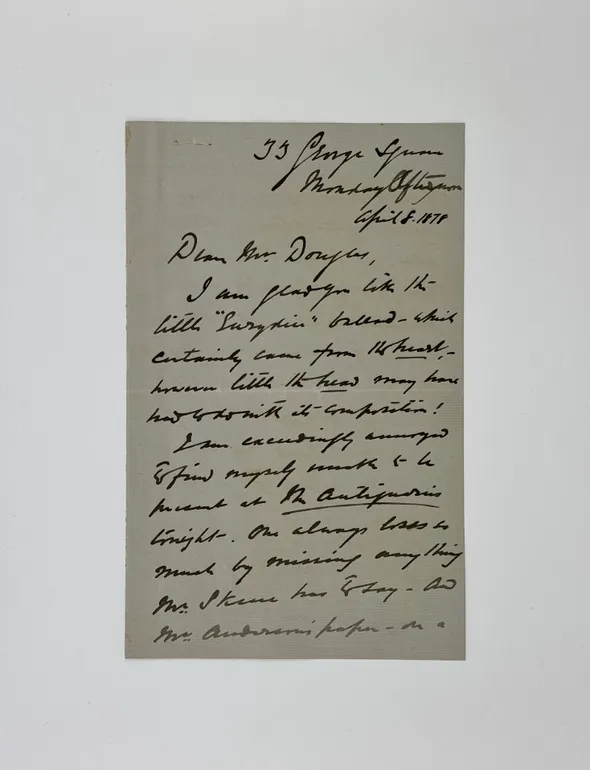 33 George Square
Monday Afternoon
April 8. 1878
Dear Mr. Douglas,
I am glad you like the
little "Eurydice" ballad - which
certainly came from the heart, -
however little the head may have
had to do with its composition!
I am exceedingly annoyed
to find myself unable to be
present at the Antiquaries
tonight. One always loses so
much by missing anything
Mr. Skene has to say - and
Mr. Anderson's paper - on a